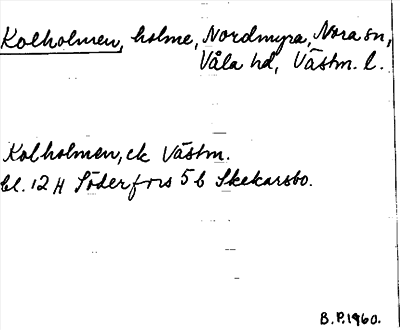 Kolholmen, holme, Nordmyra, Nora sn,
Våla hd, Västm. l.
Kolholmen, ek Västm.
bl. 12 H Söderfors 5 b Skekarsbo.
B.P. 1960.